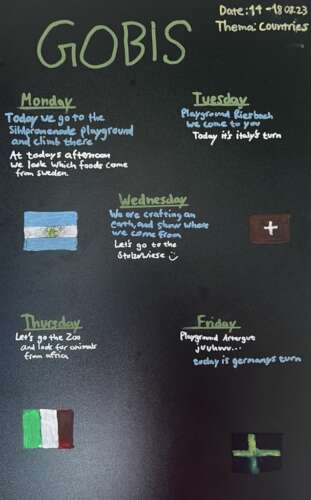 GOBIS
Date: 14 - 18.08.23
Thema: Countries
Monday
Today we go to the
Sihlpromenade playground
and climb there
At todays afternoon
we look which foods come
from sweden.
Tuesday
Playground Rierbach
we come to you
Today it's italy's turn
Wednesday
We are crafting an
earth, and show where
we come from
Let's go to the
Stolzewiese
Thursday
Let's go the Zoo
and look for animals
from africa
Friday
Playground Artergut
juuhuuu...
today is germanys turn